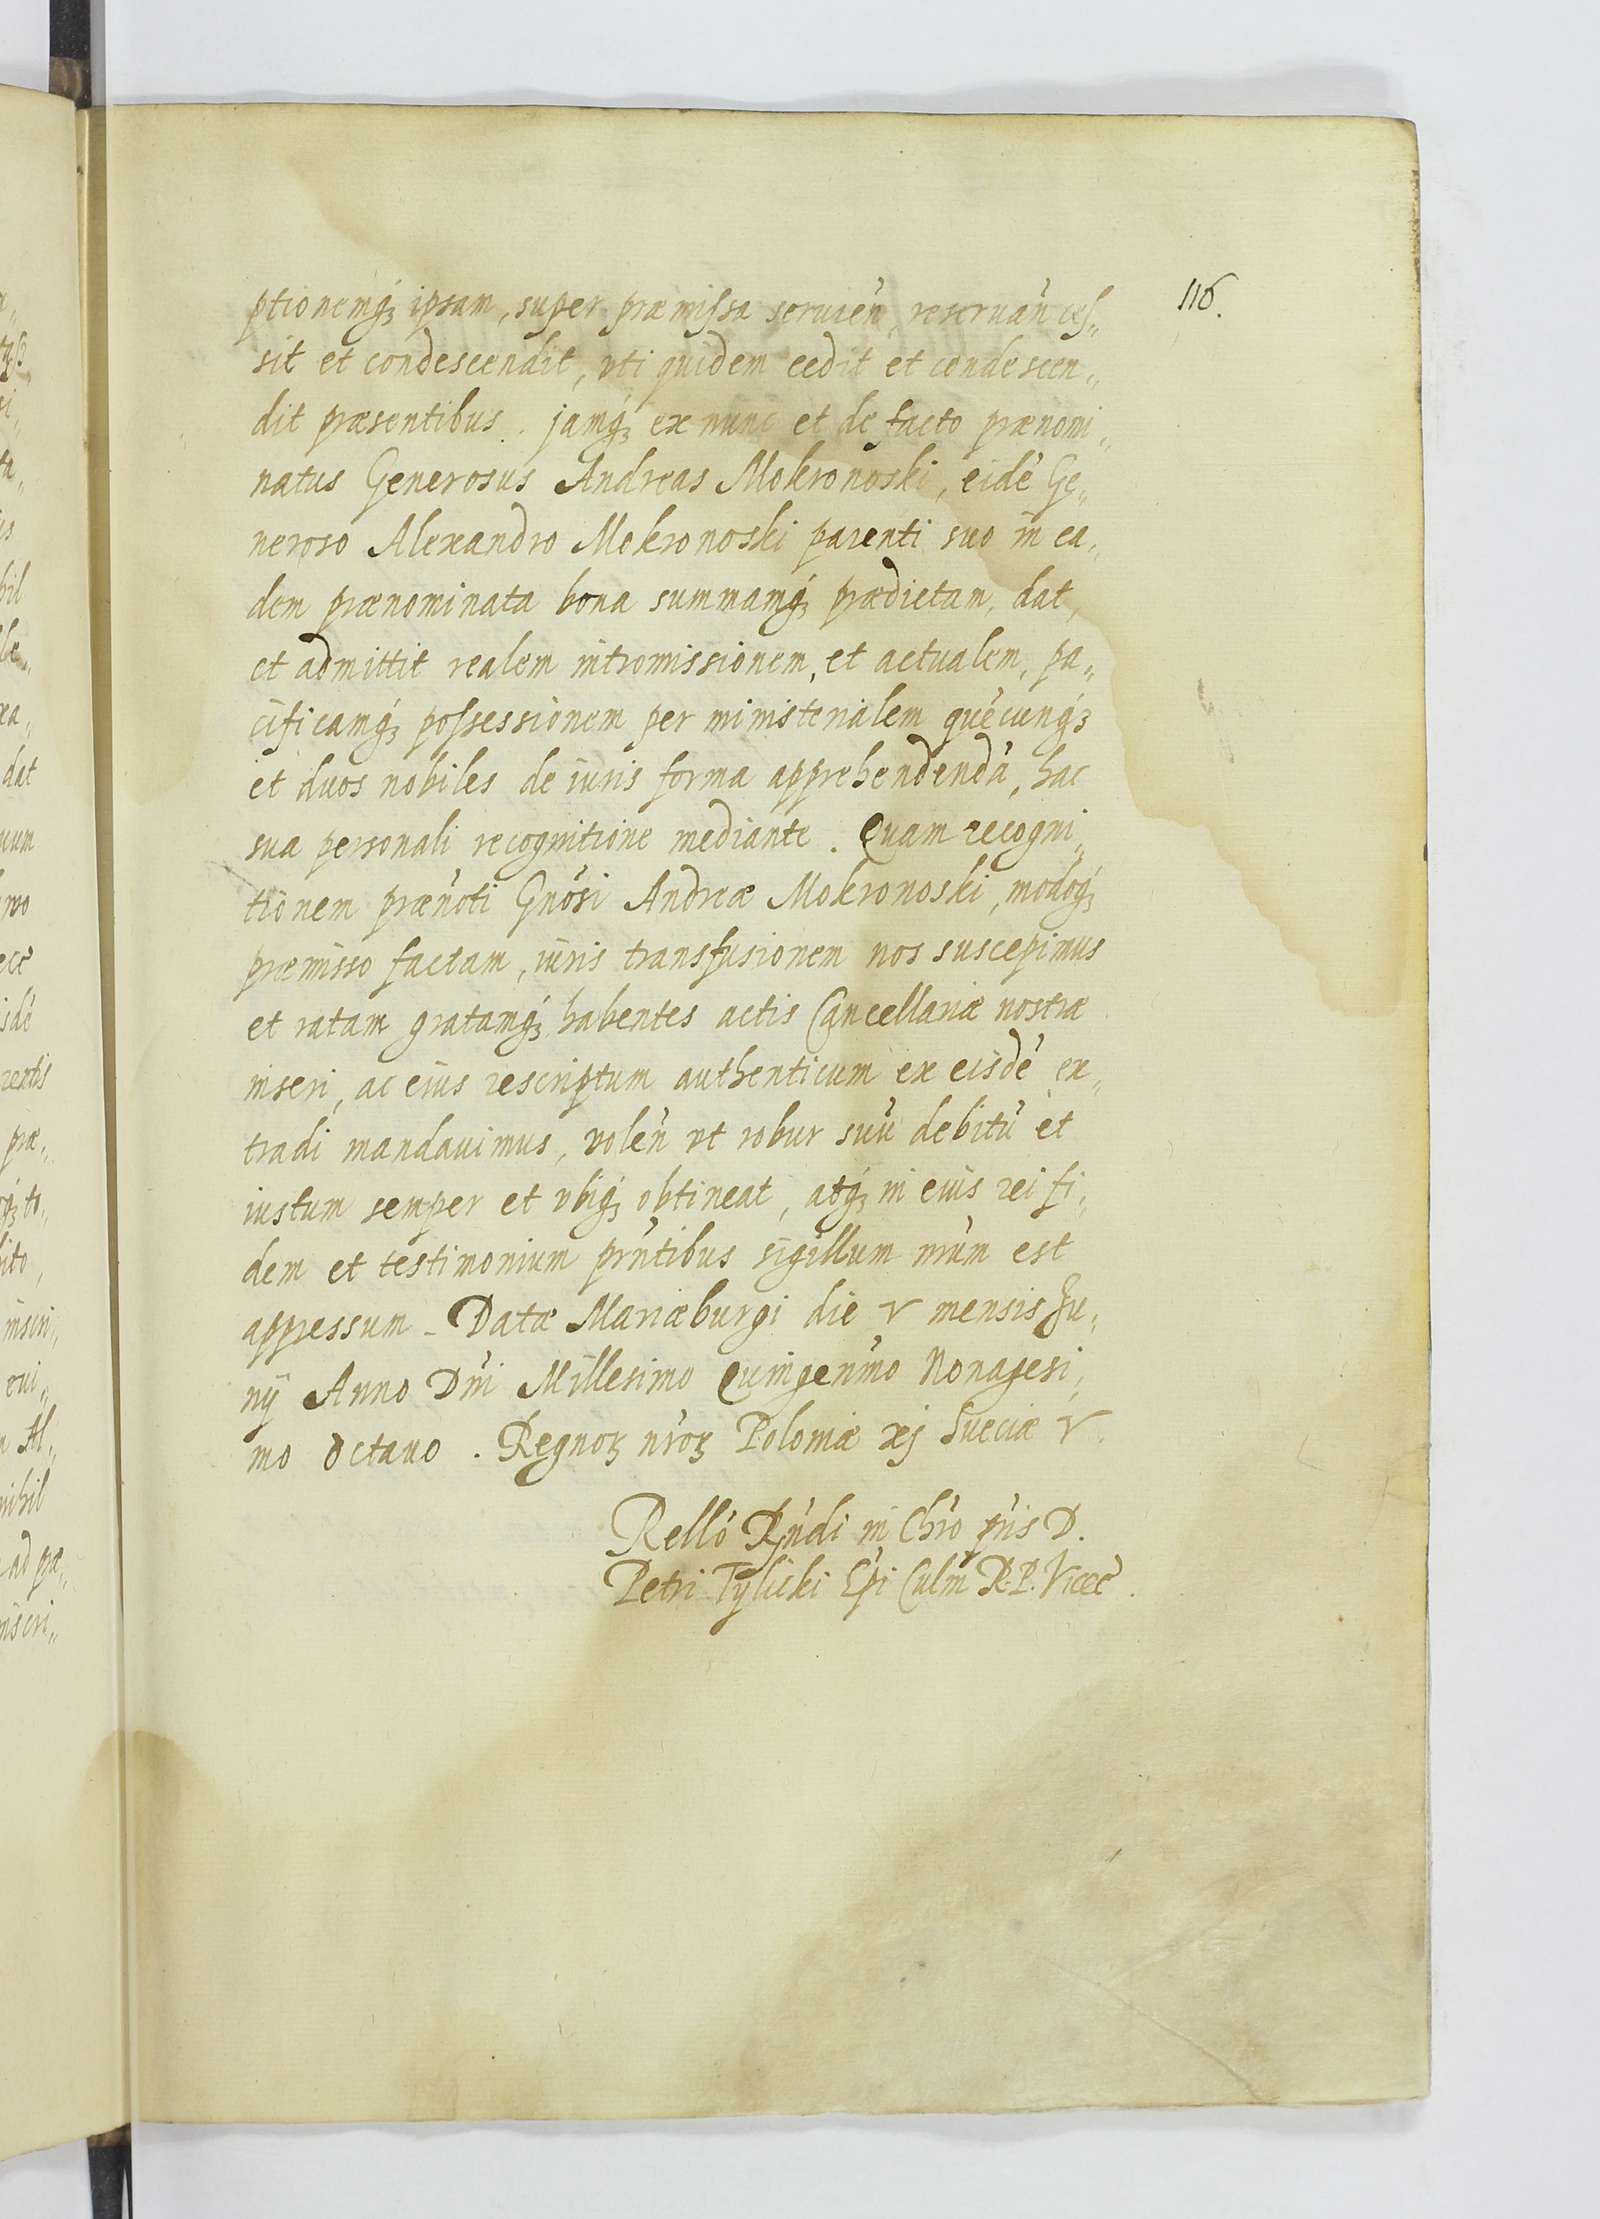 116.
ptionemq́ꝫ ipsam, super præmissa seruień, reseruań ces„
sit et condescendit, vti quidem cedit et condescen„
dit præsentibus. jamq́ꝫ ex nunc et de facto prænomi„
natus Generosus Andreas Mokronoski, eidē Ge„
neroso Alexandro Mokronoski parenti suo in ea„
dem prænominata bona summamq́ꝫ prædictam, dat,
et admittit realem intromissionem, et actualem, pa„
cificamq́ꝫ possessionem per ministerialem quēcunq́ꝫ
et duos nobiles de iuris forma apprehendendā, hac
sua personali recognitione mediante. Quam recogni„
tionem præn̄oti Gn̄osi Andreæ Mokronoski, modoq́ꝫ
præmisso factam, iuris transfusionem nos suscepimus
et ratam gratamq́ꝫ habentes actis Cancellariæ nostræ
inseri, ac eius rescriptum authenticum ex eisdē ex„
tradi mandauimus, voleń vt robur suū debitū et
iustum semper et vbiq́ꝫ obtineat, atq́ꝫ in eius rei fi„
dem et testimonium prn̄tibus sigillum nr̄um est
appressum. Datæ Mariæburgi die V mensis Ju„
nij Anno Dn̄i Millesimo Quingen̄mo Nonagesi„
mo Octauo. Regnoꝝ nr̄oꝝ Poloniæ xj Sueciæ V.
Rellō Rn̄di in Chr̄o pr̄is D.
Petri Tylicki Ep̄i Culm̄ R. P. Vicec̄.